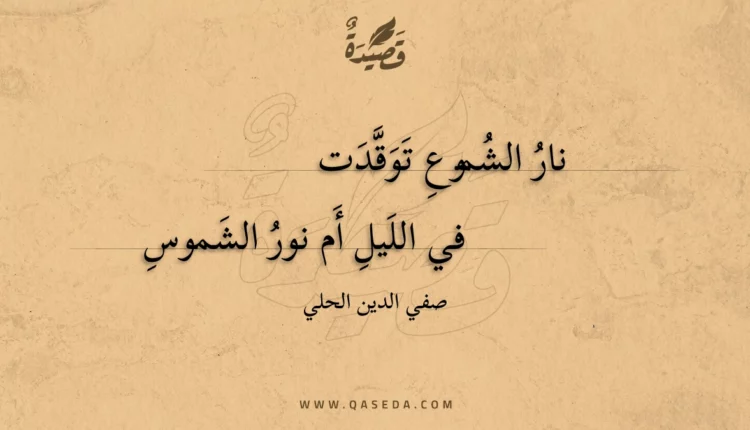 قَصِيدَةٌ
نارُ الشُموعِ تَوَقَّدَت
في اللَيلِ أَم نورُ الشَموسِ
صفي الدين الحلي
WWW.QASEDA.COM